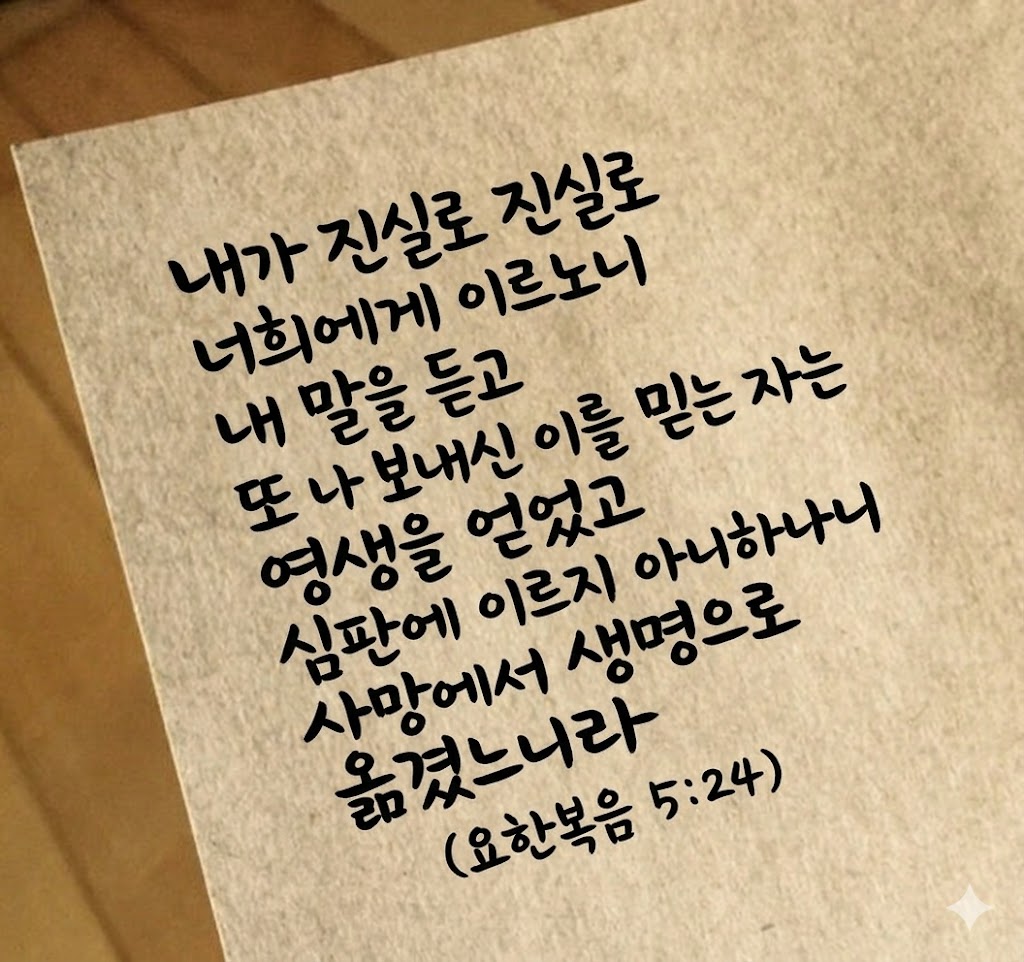 내가 진실로 진실로
너희에게 이르노니
내 말을 듣고
또 나 보내신 이를 믿는 자는
영생을 얻었고
심판에 이르지 아니하나니
사망에서 생명으로
옮겼느니라
(요한복음 5:24)